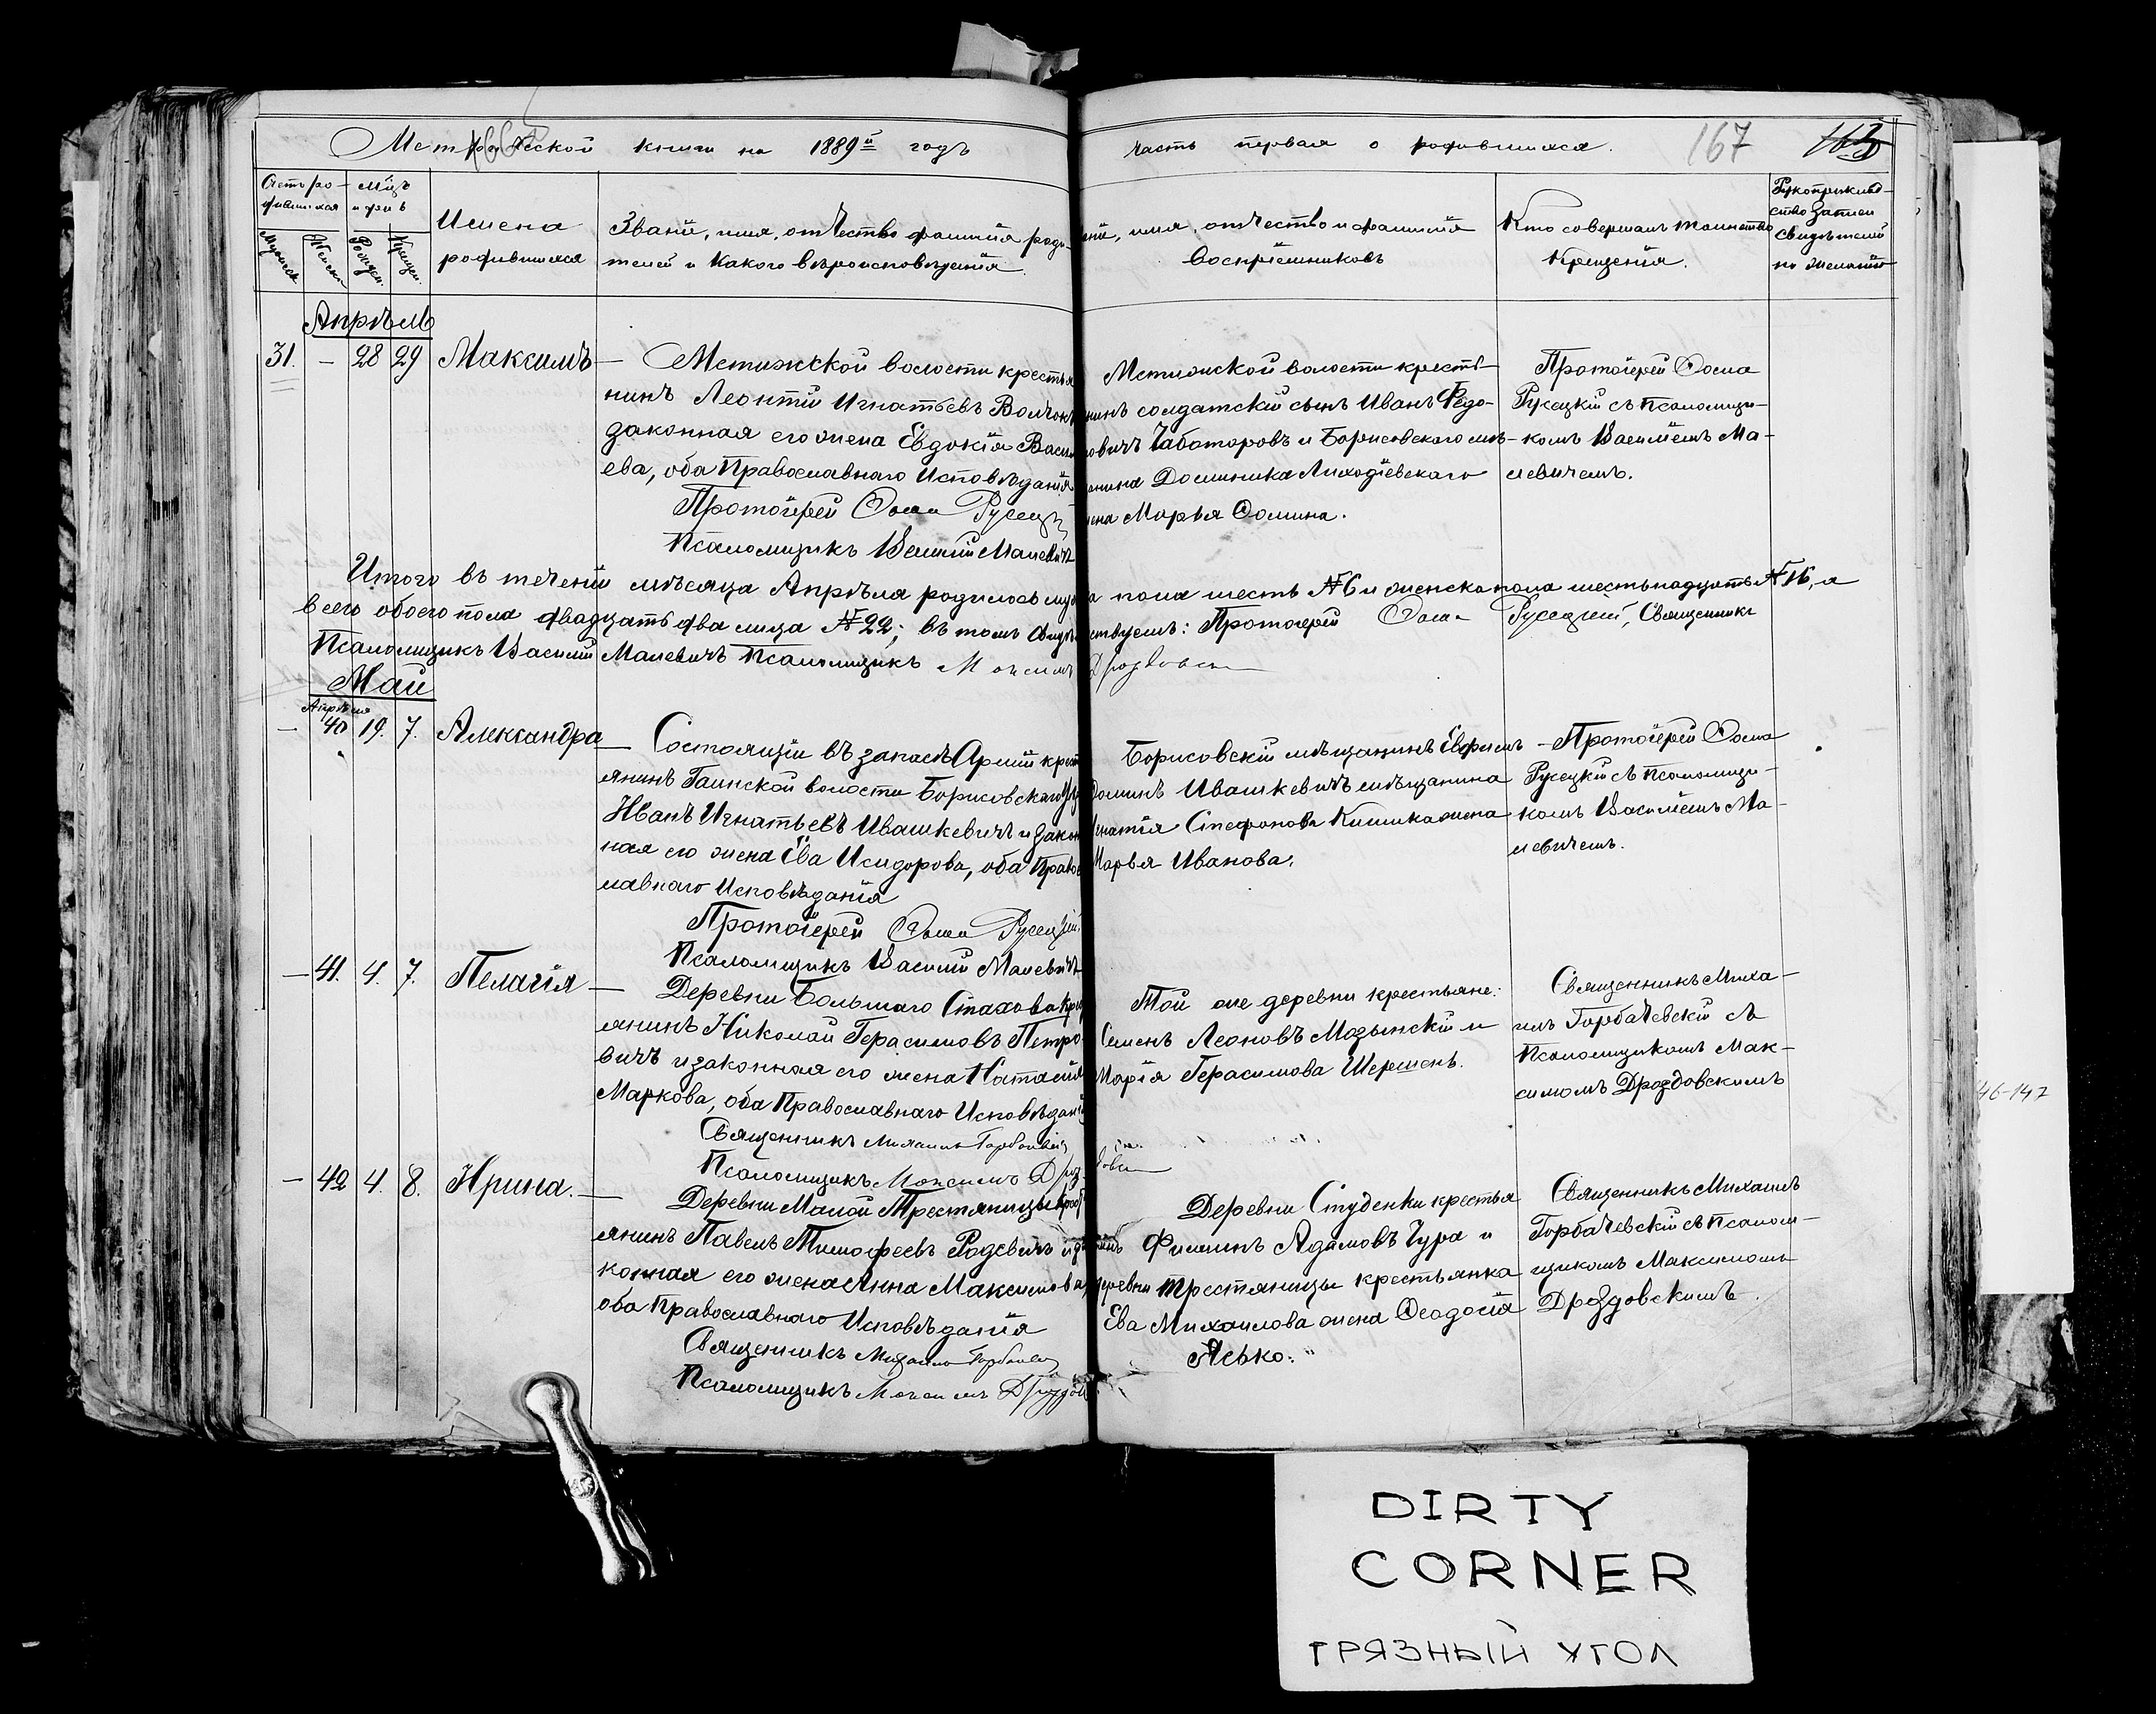 Метрической книги на 1889й годъ часть первая о родившихся. 167
Счетъ родившихся
Мужеска
Женска
Мѣцъ и день
Рожден.
Крещен.
Имена родившихся
Званіе, имя, отчество фамилія роди-
телей и какого вѣроисповѣданія.
ніе, имя, отчество и фамилія
воспріемниковъ
Кто совершалъ таинство
Крещенія.
Рукоприклад-
ство записи
свидѣтелей
по желанію
Апрѣль
31. — 28 29 Максимъ —
Метижской волости крестья
нинъ Леонтій Игнатьевъ Волчокъ
законная его жена Евдокія Васил
ева, оба Православнаго Исповѣданія
Протоіерей Ѳома Русецкій
Псаломщикъ Василій Малевичъ
Метижской волости кресть-
нинъ солдатскій сынъ Иванъ Ѳедо-
ровичъ и Борисовскаго мѣ-
щанина Доминика Лиходіевскаго
жена Марья Ѳомина.
Протоіерей Ѳома
Русецкій съ псаломщи-
комъ Василіемъ Ма-
левичемъ.
Итого въ теченіи мѣсяца Апрѣля родилось муж пола шесть №6 и женска пола шестьнадцать №16, а
всего обоего пола двадцать два лица №22; въ томъ свидѣтельствуемъ: Протоіерей Ѳома Русецкій, Священникъ
Псаломщикъ Василій Малевичъ Псаломщикъ Максимъ Дроздовскій
Май
Апрѣля
— 40 19. 7. Александра —
Состоящій въ запасѣ Арміи крест
янинъ Гаинской волости Борисовскаго уѣ
Иванъ Игнатьевъ Ивашкевичъ и закон
ная его жена Ева Исидорова, оба Правос
лавнаго Исповѣданія
Протоіерей Ѳома Русецкій
Псаломщикъ Василій Малевичъ
Борисовскій мѣщанинъ Евфимъ
Ѳоминъ Ивашкевичъ мѣщанина
Игнатія Стефанова жена
Марья Иванова.
— Протоіерей Ѳома
Русецкій съ псаломщи-
комъ Василіемъ Ма-
левичемъ.
— 41. 4. 7. Пелагія —
Деревни Большаго Стахова крес
янинъ Николай Герасимовъ Петро-
вичъ и законная его жена Наталія
Маркова, оба Православнаго Исповѣданія
Священникъ Михаилъ Горбачевскій
Псаломщикъ Максимъ Дроздовскій
Той же деревни крестьяне:
Семенъ Леоновъ Мозынскій и
Марія Герасимова Шершень.
Священникъ Миха-
илъ Горбачевскій съ
Псаломщикомъ Мак-
симомъ Дроздовскимъ
— 42 4. 8. Ирина. —
Деревни Малой Тростяницы крест
янинъ Павелъ Тимофеевъ Родевичъ и за
конная его жена Анна Максимова,
оба Православнаго Исповѣданія
Священникъ Михаилъ Горбачевскій
Псаломщикъ Максимъ Дроздов
Деревни Студенки крестья
нинъ Филипъ Адамовъ Чура и
деревни Тростяницы крестьянка
Ева Михайлова жена Ѳеодосія
Ясько.
Священникъ Михаилъ
Горбачевскій съ псалом-
щикомъ Максимомъ
Дроздовскимъ.
46-147
DIRTY
CORNER
ГРЯЗНЫЙ УГОЛ